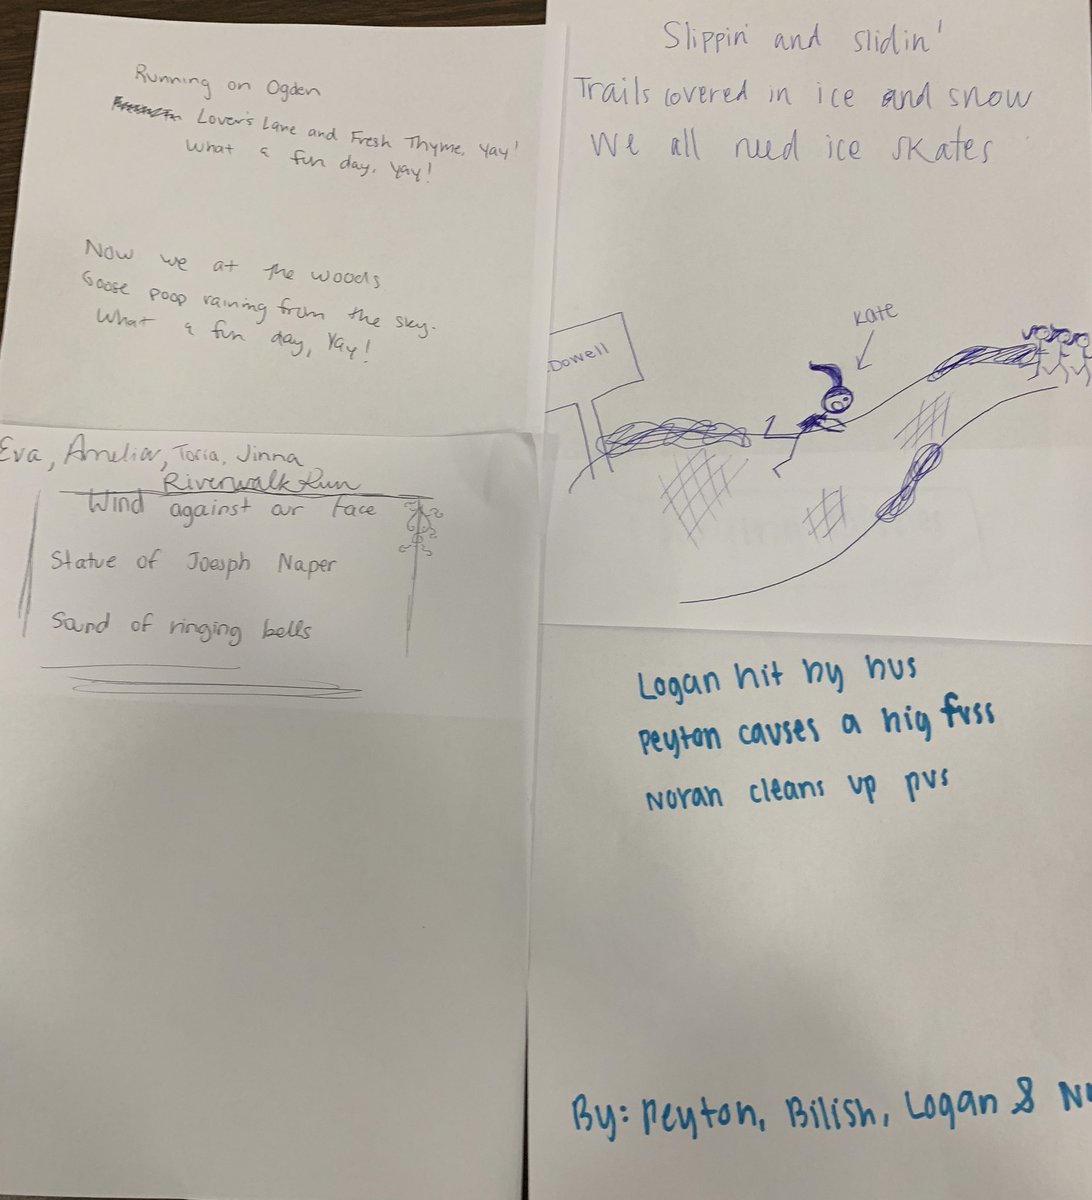 Running on Ogden
Lover's Lane and Fresh Thyme, Yay!
What a fun day, yay!
Now we at the woods
Goose poop raining from the sky.
What a fun day, Yay!
Eva, Amelia, Toria, Jinna
Riverwalk Run
Wind against our face
Statue of Joesph Naper
Sound of ringing bells
Slippin' and slidin'
Trails covered in ice and snow
We all need ice skates
Kate
Dowell
Logan hit by bus
Peyton causes a big fuss
Noran cleans up pus
By: Peyton, Bilish, Logan & No